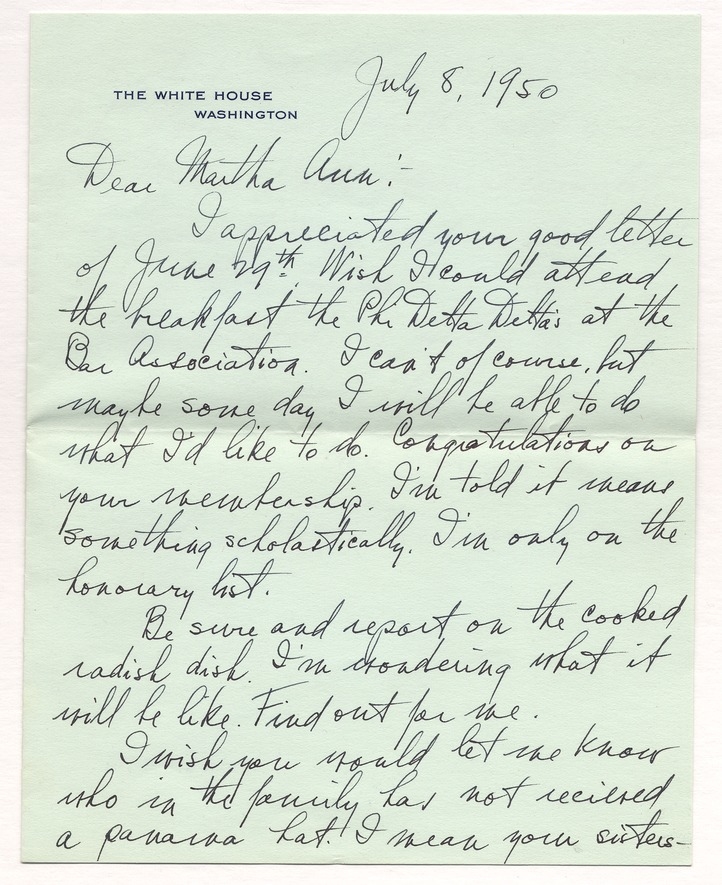 THE WHITE HOUSE
WASHINGTON
July 8, 1950
Dear Martha Ann:-
I appreciated your good letter
of June 29th. Wish I could attend
the breakfast the Phi Delta Delta's at the
Bar Association. I can't of course, but
maybe some day I will be able to do
what I'd like to do. Congratulations on
your membership. I'm told it means
something scholastically. I'm only on the
honorary list.
Be sure and report on the cooked
radish dish. I'm wondering what it
will be like. Find out for me.
I wish you would let me know
who in the family has not recieved
a panama hat. I mean your sisters-